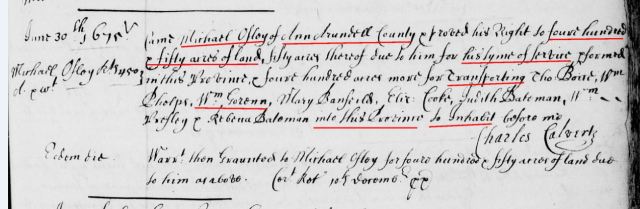 June 30th 1675
Came Michael Ofley of Ann Arundell County & proved his Right to foure hundred
& fifty acres of land, fifty acres thereof due to him for his tyme of Service pformed
Michael Ofley Rts 450
in this Province, & foure hundred acres more for Transporting Tho: Boise, Wm
Phelps, Wm Gorenn, Mary Banfeild, Eliz: Cooke, Judith Bateman, Wm
Presley & Rebecca Bateman into this Province to Inhabit before me
Charles Calvert
Eodem die
Warrt then Graunted to Michael Ofley for foure hundred & fifty acres of land due
to him as above. Cert Ret 10th Decemb